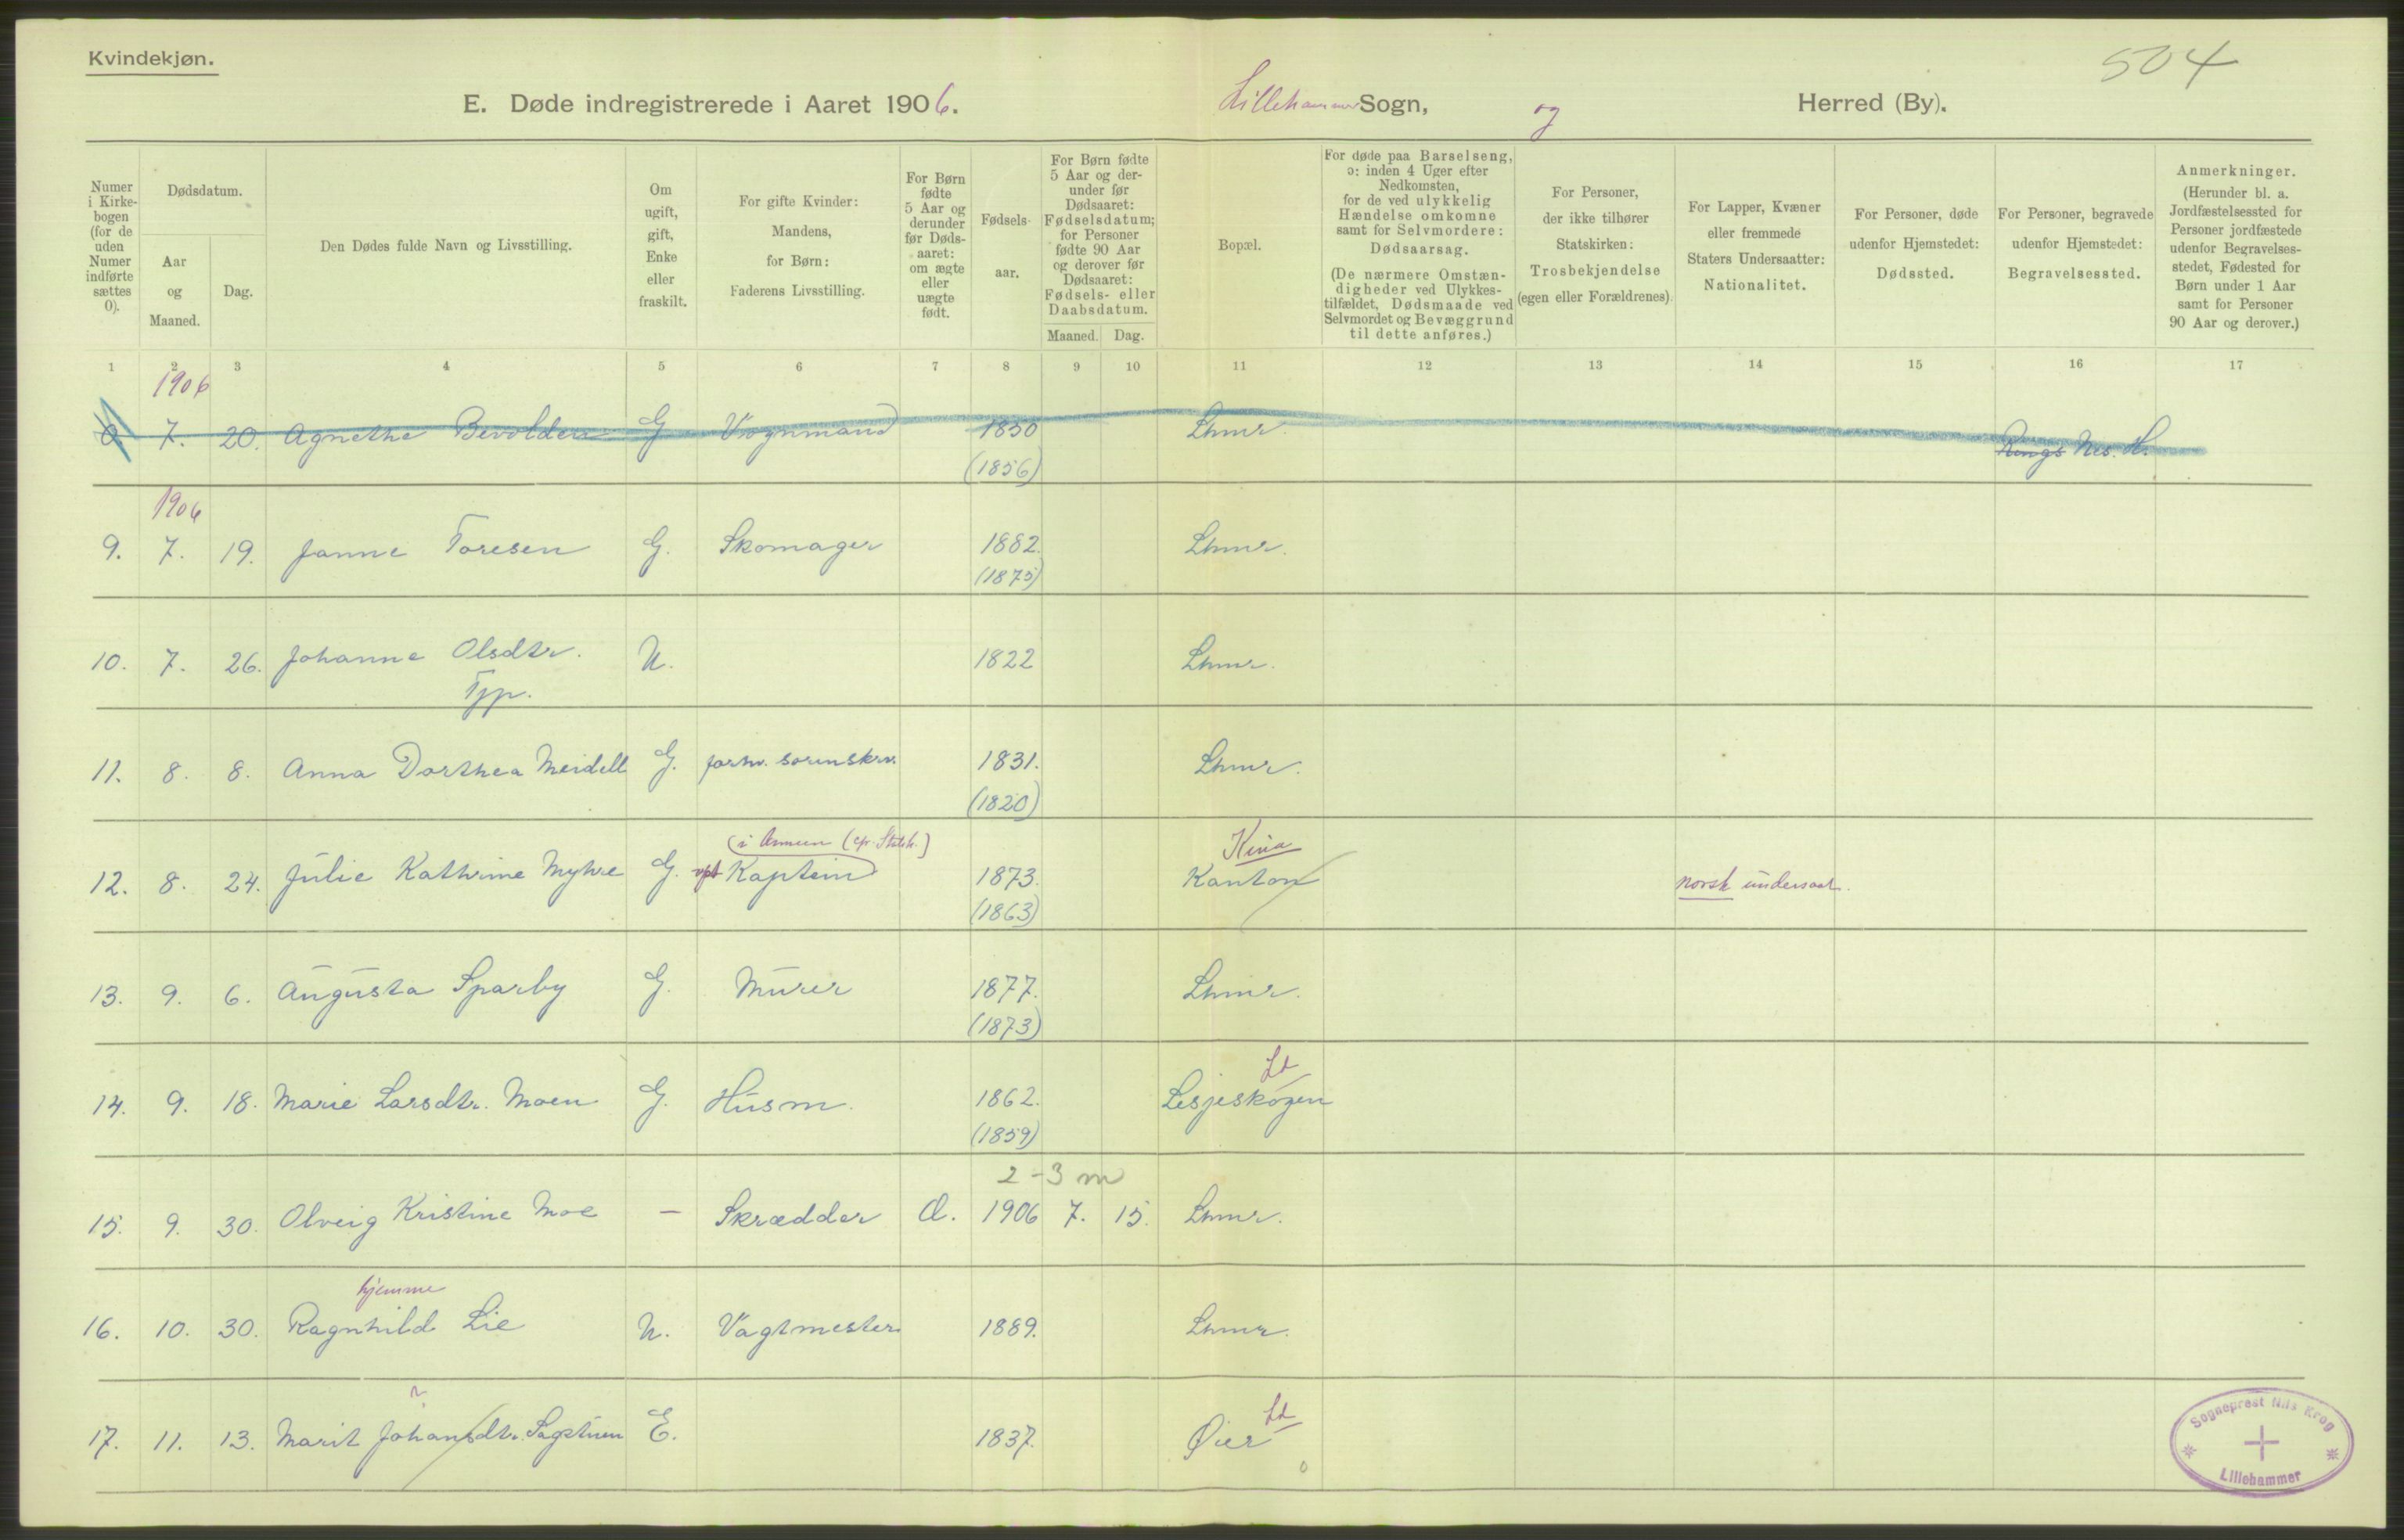 Kvindekjøn.
504
E. Døde indregistrerede i Aaret 1906. Lillehammer Sogn, og Herred (By).
Numer i Kirkebogen (for de uden Numer indførte sættes 0).
Dødsdatum.
Aar og Maaned.
Dag.
Den Dødes fulde Navn og Livsstilling.
Om ugift, gift, Enke eller fraskilt.
For gifte Kvinder: Mandens, for Børn: Faderens Livsstilling.
For Børn fødte 5 Aar og derunder før Dødsaaret: om ægte eller uægte født.
Fødselsaar.
For Børn fødte 5 Aar og derunder før Dødsaaret: Fødselsdatum; for Personer fødte 90 Aar og derover før Dødsaaret: Fødsels- eller Daabsdatum.
Maaned. Dag.
Bopæl.
For døde paa Barselseng, ɔ: inden 4 Uger efter Nedkomsten, for de ved ulykkelig Hændelse omkomne samt for Selvmordere: Dødsaarsag.
(De nærmere Omstændigheder ved Ulykkestilfældet, Dødsmaade ved Selvmordet og Bevæggrund til dette anføres.)
For Personer, der ikke tilhører Statskirken: Trosbekjendelse (egen eller Forældrenes).
For Lapper, Kvæner eller fremmede Staters Undersaatter: Nationalitet.
For Personer, døde udenfor Hjemstedet: Dødssted.
For Personer, begravede udenfor Hjemstedet: Begravelsessted.
Anmerkninger.
(Herunder bl. a. Jordfæstelsessted for Personer jordfæstede udenfor Begravelsesstedet, Fødested for Børn under 1 Aar samt for Personer 90 Aar og derover.)
1 2 3 4 5 6 7 8 9 10 11 12 13 14 15 16 17
1906
0. 7. 20. Agnethe G Vognmand 1850 Lhmr. Rings Nes. H.
(1856)
1906
9. 7. 19. Janne Toresen G. Skomager 1882. Lhmr.
(1875)
10. 7. 26. Johanne Olsdtr. U. 1822 Lhmr.
Tjp.
11. 8. 8. Anna Dorthea Meidell G. forhv. sorenskrv. 1831. Lhmr.
(1820)
(i Armeen Kina
12. 8. 24. Julie Kathrine Myhre G. Kaptein 1873. Kanton norsk undersaat.
(1863)
13. 9. 6. Augusta Sparby G. Murer 1877. Lhmr.
(1873)
Ld
14. 9. 18. Marie Larsdtr. Moen G. Husm. 1862. Lesjeskogen
(1859)
2-3 m
15. 9. 30. Olveig Kristine Moe — Skrædder 1906 7. 15. Lhmr.
hjemme
16. 10. 30. Ragnhild Lie U. Vagtmester 1889. Lhmr.
Ld
17. 11. 13. Marit Johansdtr. Sagstuen E. 1837. Øier
Sogneprest Nils Krog
Lillehammer